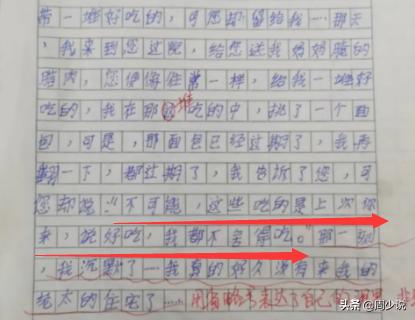 带一堆好吃的，可您却留给我…那天
，我来到您这呢，给您送我妈妈腌的
腊肉，您便像往常一样，给我一堆好
吃的，我在那堆吃的中，挑了一个面
包，可是，那面包已经过期了，我再
翻一下，都过期了，我告诉了您，可
您却说："不可能，这些吃的是上次你
来，说好吃，我都不舍得吃。"那一刻
，我沉默了…我真的好久没有来我的
太的住宅了……用省略号表达了自己的
头条 @周少说